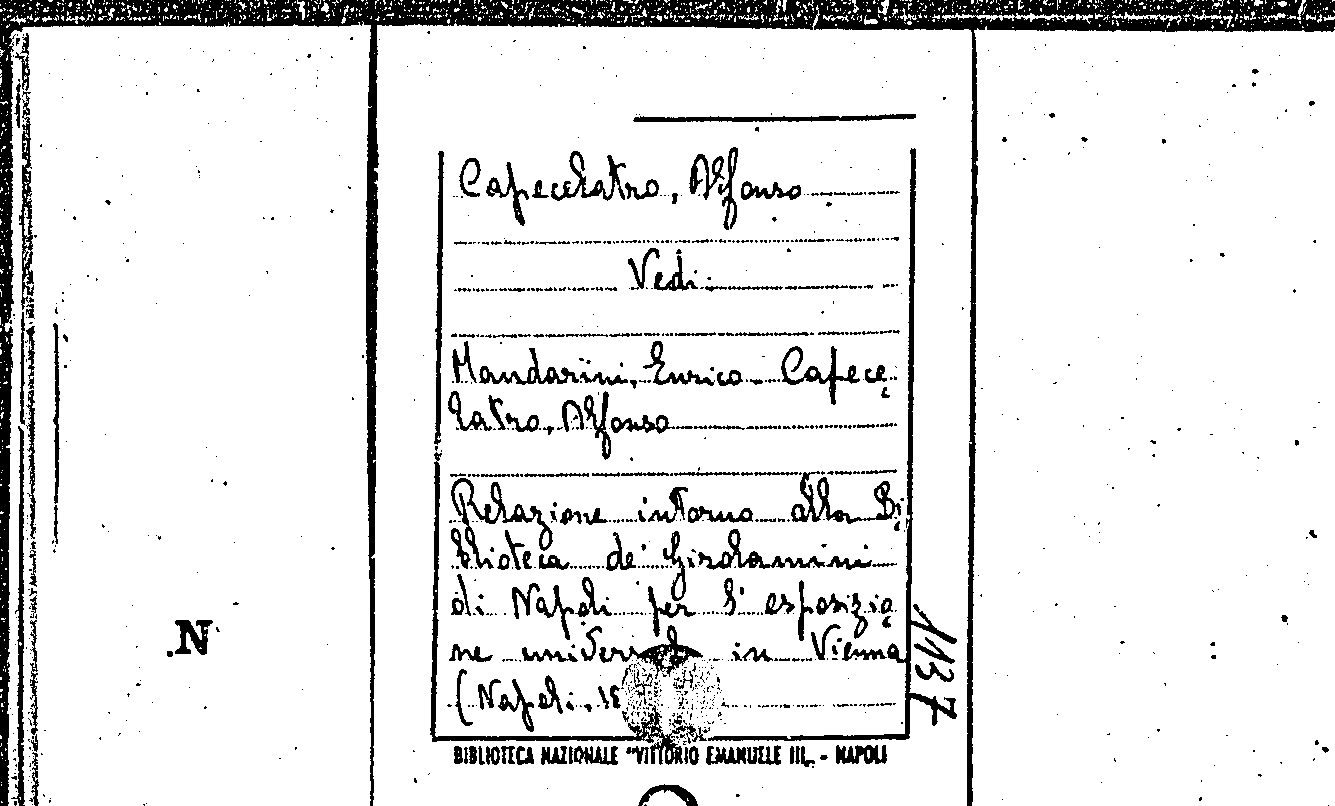 Capecelatro, Alfonso
Vedi:
Mandarini, Enrico. Capece
latro, Alfonso
Relazione intorno alla Bi
blioteca de' Girolamini
di Napoli per l' esposizio
ne in Vienna
(Napoli, 18
1137
.N
BIBLIOTECA NAZIONALE "VITTORIO EMANUELE III„ - NAPOLI